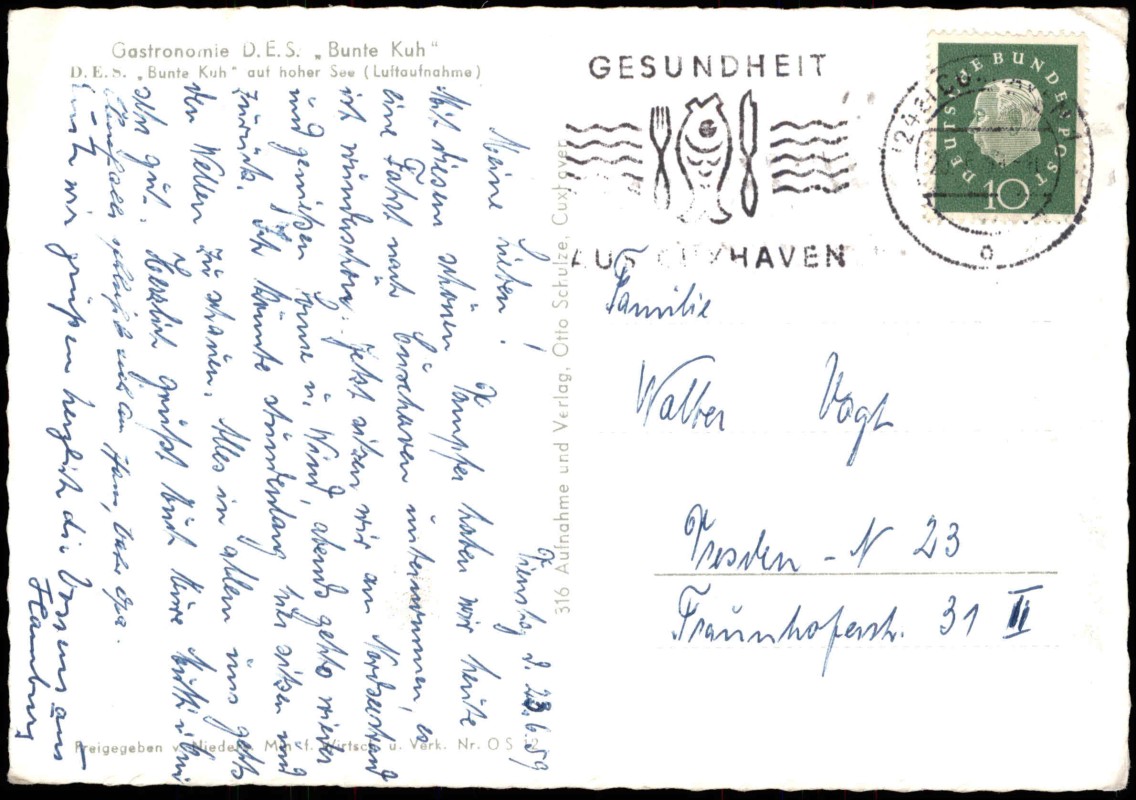 Gastronomie D.E.S. „Bunte Kuh"
D.E.S. „Bunte Kuh" auf hoher See (Luftaufnahme)
Dienstag d. 23.6.59
Meine Lieben!
Mit diesem schönen Dampfer haben wir heute
eine Fahrt nach Cuxhaven unternommen, es
ist wunderschön. Jetzt sitzen wir am Nordseestrand
und genießen Sonne u. Wind, abends gehts wieder
zurück. Ich könnte stundenlang hier sitzen und
den Wellen zu schauen. Alles in allem uns gehts
sehr gut. Herzlich grüßt Euch Eure
Ebenfalls
Auch wir grüßen herzlich die Vossens aus
Hamburg
Freigegeben v. Nieders. Min. f. Wirtsch. u. Verk. Nr. OS
316 Aufnahme und Verlag, Otto Schulze, Cuxhaven
GESUNDHEIT
AUS CUXHAVEN
DEUTSCHE BUNDESPOST
10
Familie
Walter Vogt
Dresden - N 23
Fraunhoferstr. 31 II